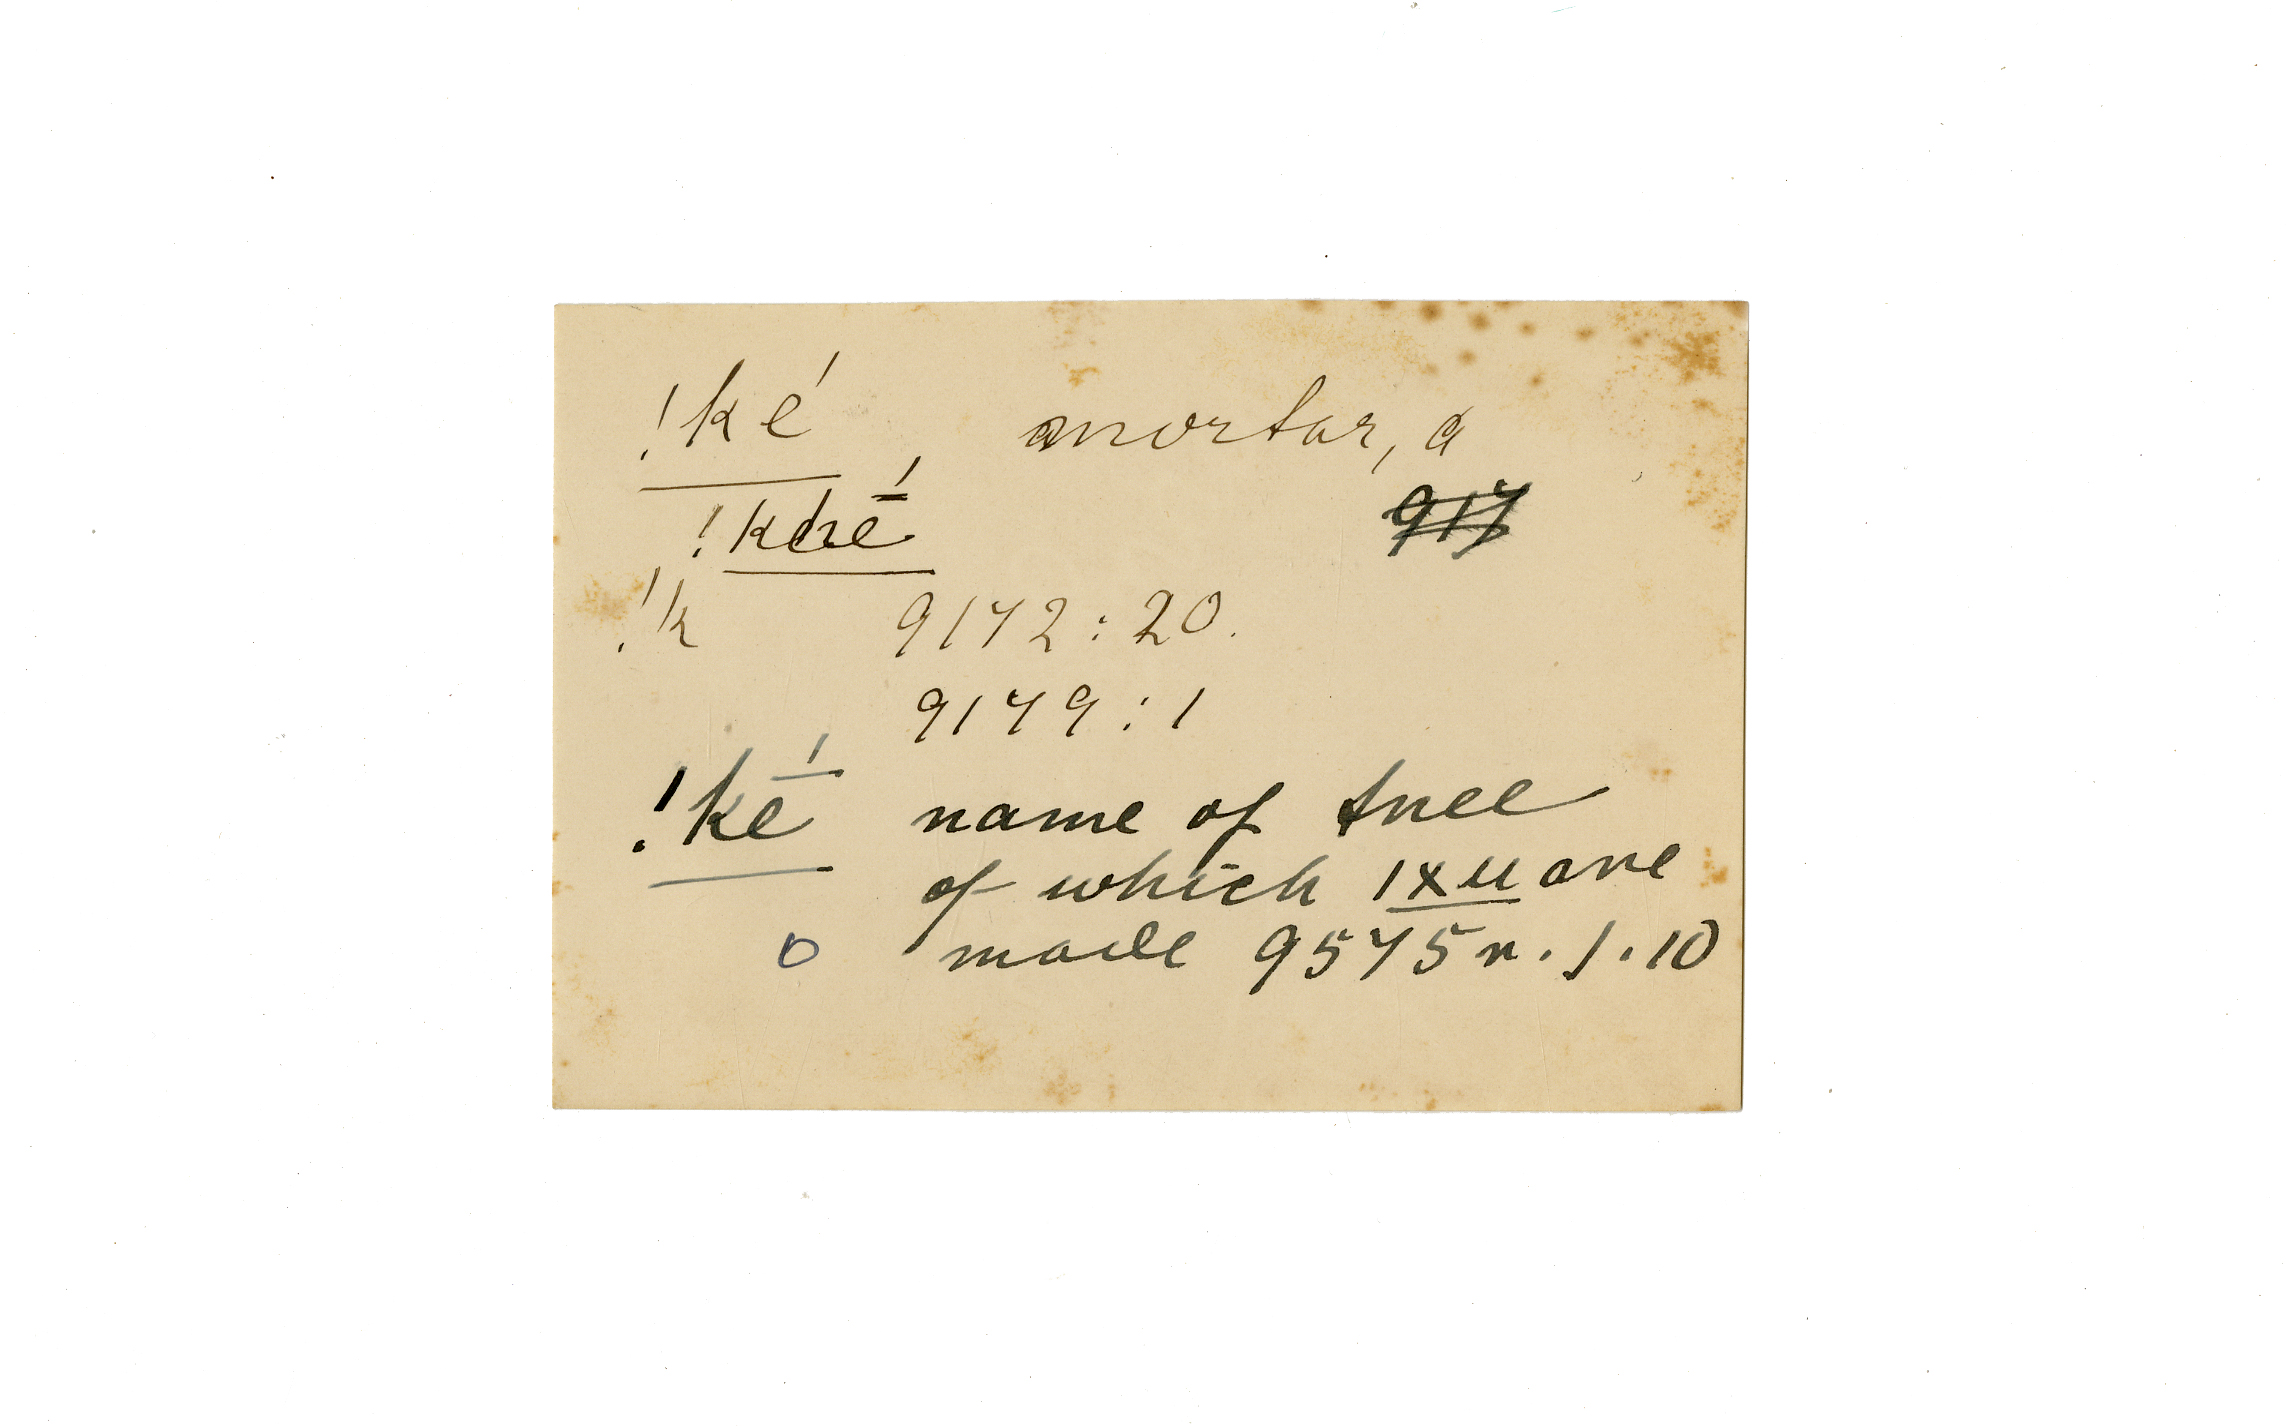 !ké mortar, a
!khé
!k 9172:20.
9179:1
!ké name of tree
of which |xu are
made 9575 r. J. 10